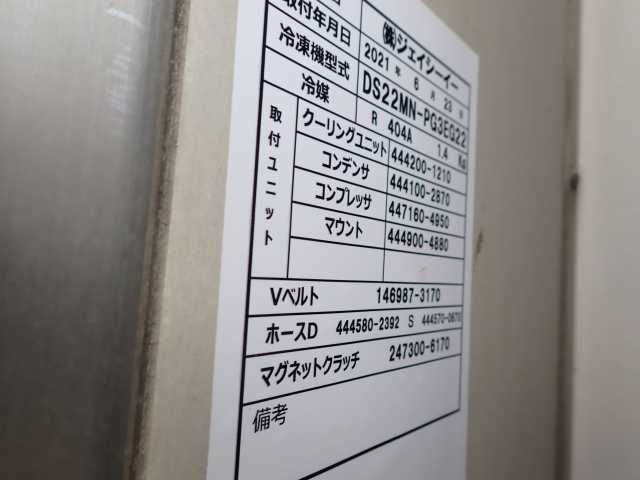 ㈱ジェイシーイー
取付年月日 2021 年 6 月 23 日
冷凍機型式 DS22MN-PG3EG22
冷媒 R 404A 1.4 Kg
取付ユニット
クーリングユニット 444200-1210
コンデンサ 444100-2870
コンプレッサ 447160-4950
マウント 444900-4880
Vベルト 146987-3170
ホースD 444580-2392 S 444570-0670
マグネットクラッチ 247300-6170
備考